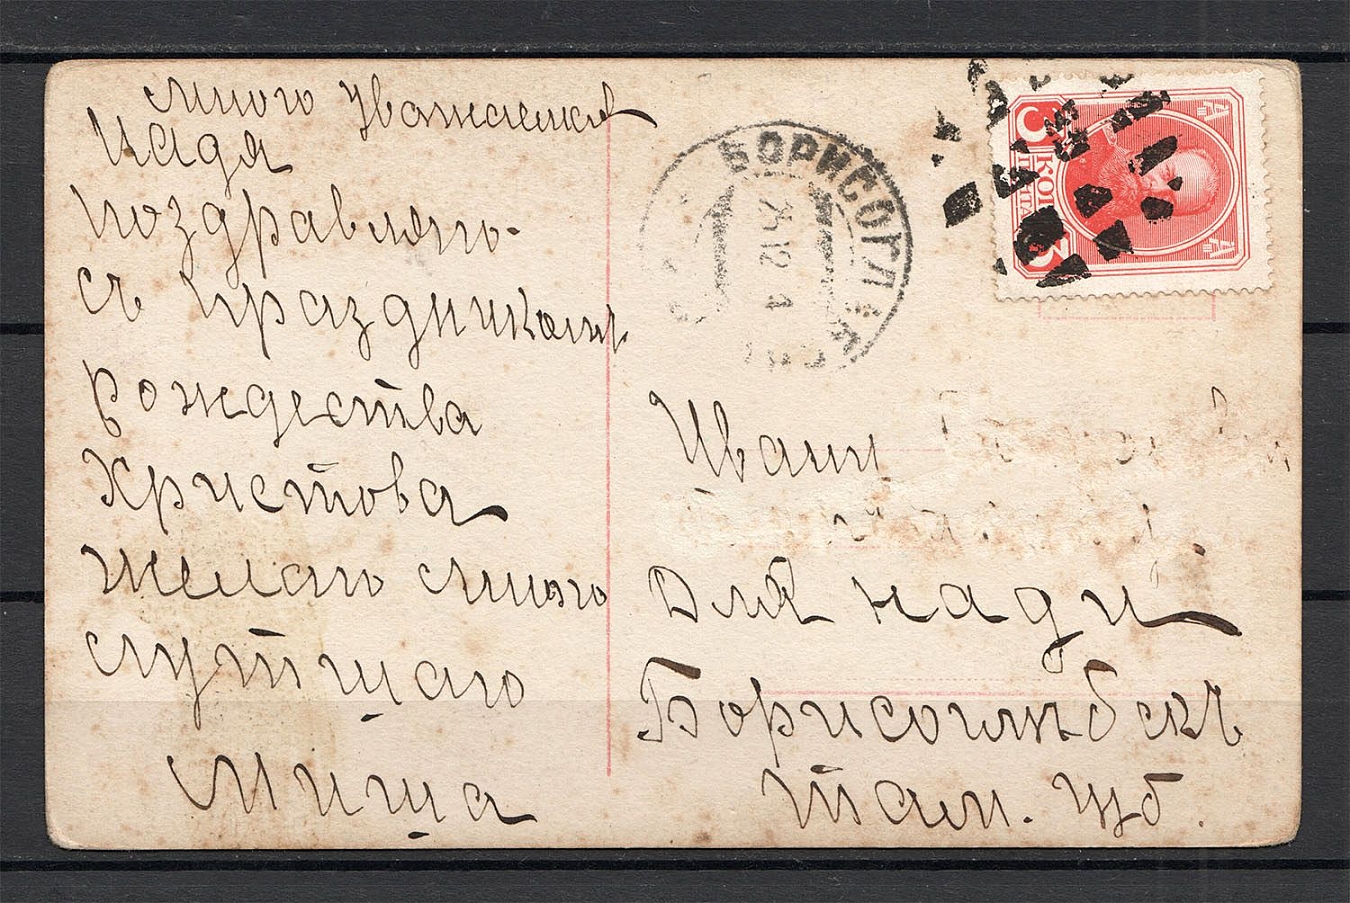 много уважаемая
Надя
поздравляю
съ праздникомъ
рождества
Христова
желаю много
лутшаго
Миша
БОРИСОГЛ
25.12
3
КОП
3
Ивану
Для нади
Борисоглѣбскъ
Там. губ.